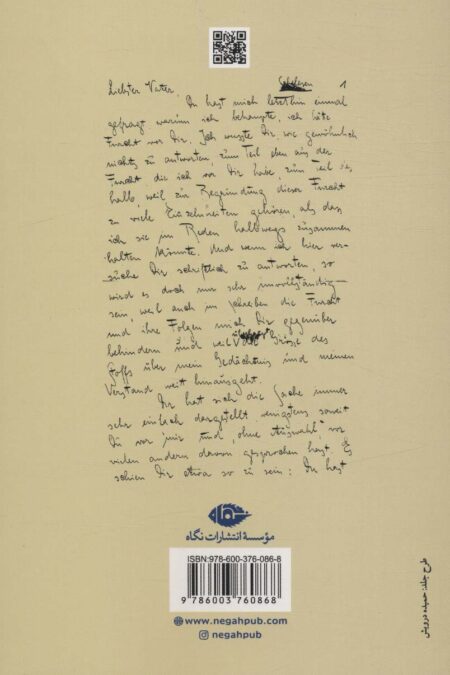 Schelesen 1
Liebster Vater,
Du hast mich letzthin einmal
gefragt, warum ich behaupte, ich hätte
Furcht vor Dir. Ich wusste Dir, wie gewöhnlich
nichts zu antworten, zum Teil eben aus der
Furcht die ich vor Dir habe, zum Teil des
halb, weil zur Begründung dieser Furcht
zu viele Einzelnheiten gehören, als dass
ich sie im Reden halbwegs zusammen
halten könnte. Und wenn ich hier ver-
suche Dir schriftlich zu antworten, so
wird es doch nur sehr unvollständig
sein, weil auch im Schreiben die Furcht
und ihre Folgen mich Dir gegenüber
behindern und weil die Grösse des
Stoffs über mein Gedächtnis und meinen
Verstand weit hinausgeht.
Dir hat sich die Sache immer
sehr einfach dargestellt, wenigstens soweit
Du vor mir und, ohne Auswahl vor
vielen andern davon gesprochen hast. Es
schien Dir etwa so zu sein: Du hast
مؤسسهٔ انتشارات نگاه
ISBN:978-600-376-086-8
9 786003 760868
www.negahpub.com
negahpub
طرح جلد: حمیده درویش